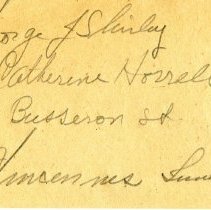 orge J Shirley
Catherine Horrel
Busseron st.
Vincennes